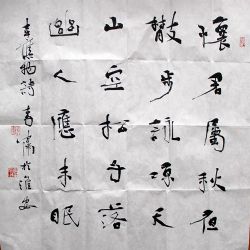 懷君屬秋夜
散步詠涼天
山空松子落
幽人應未眠
韋應物詩 於淮安